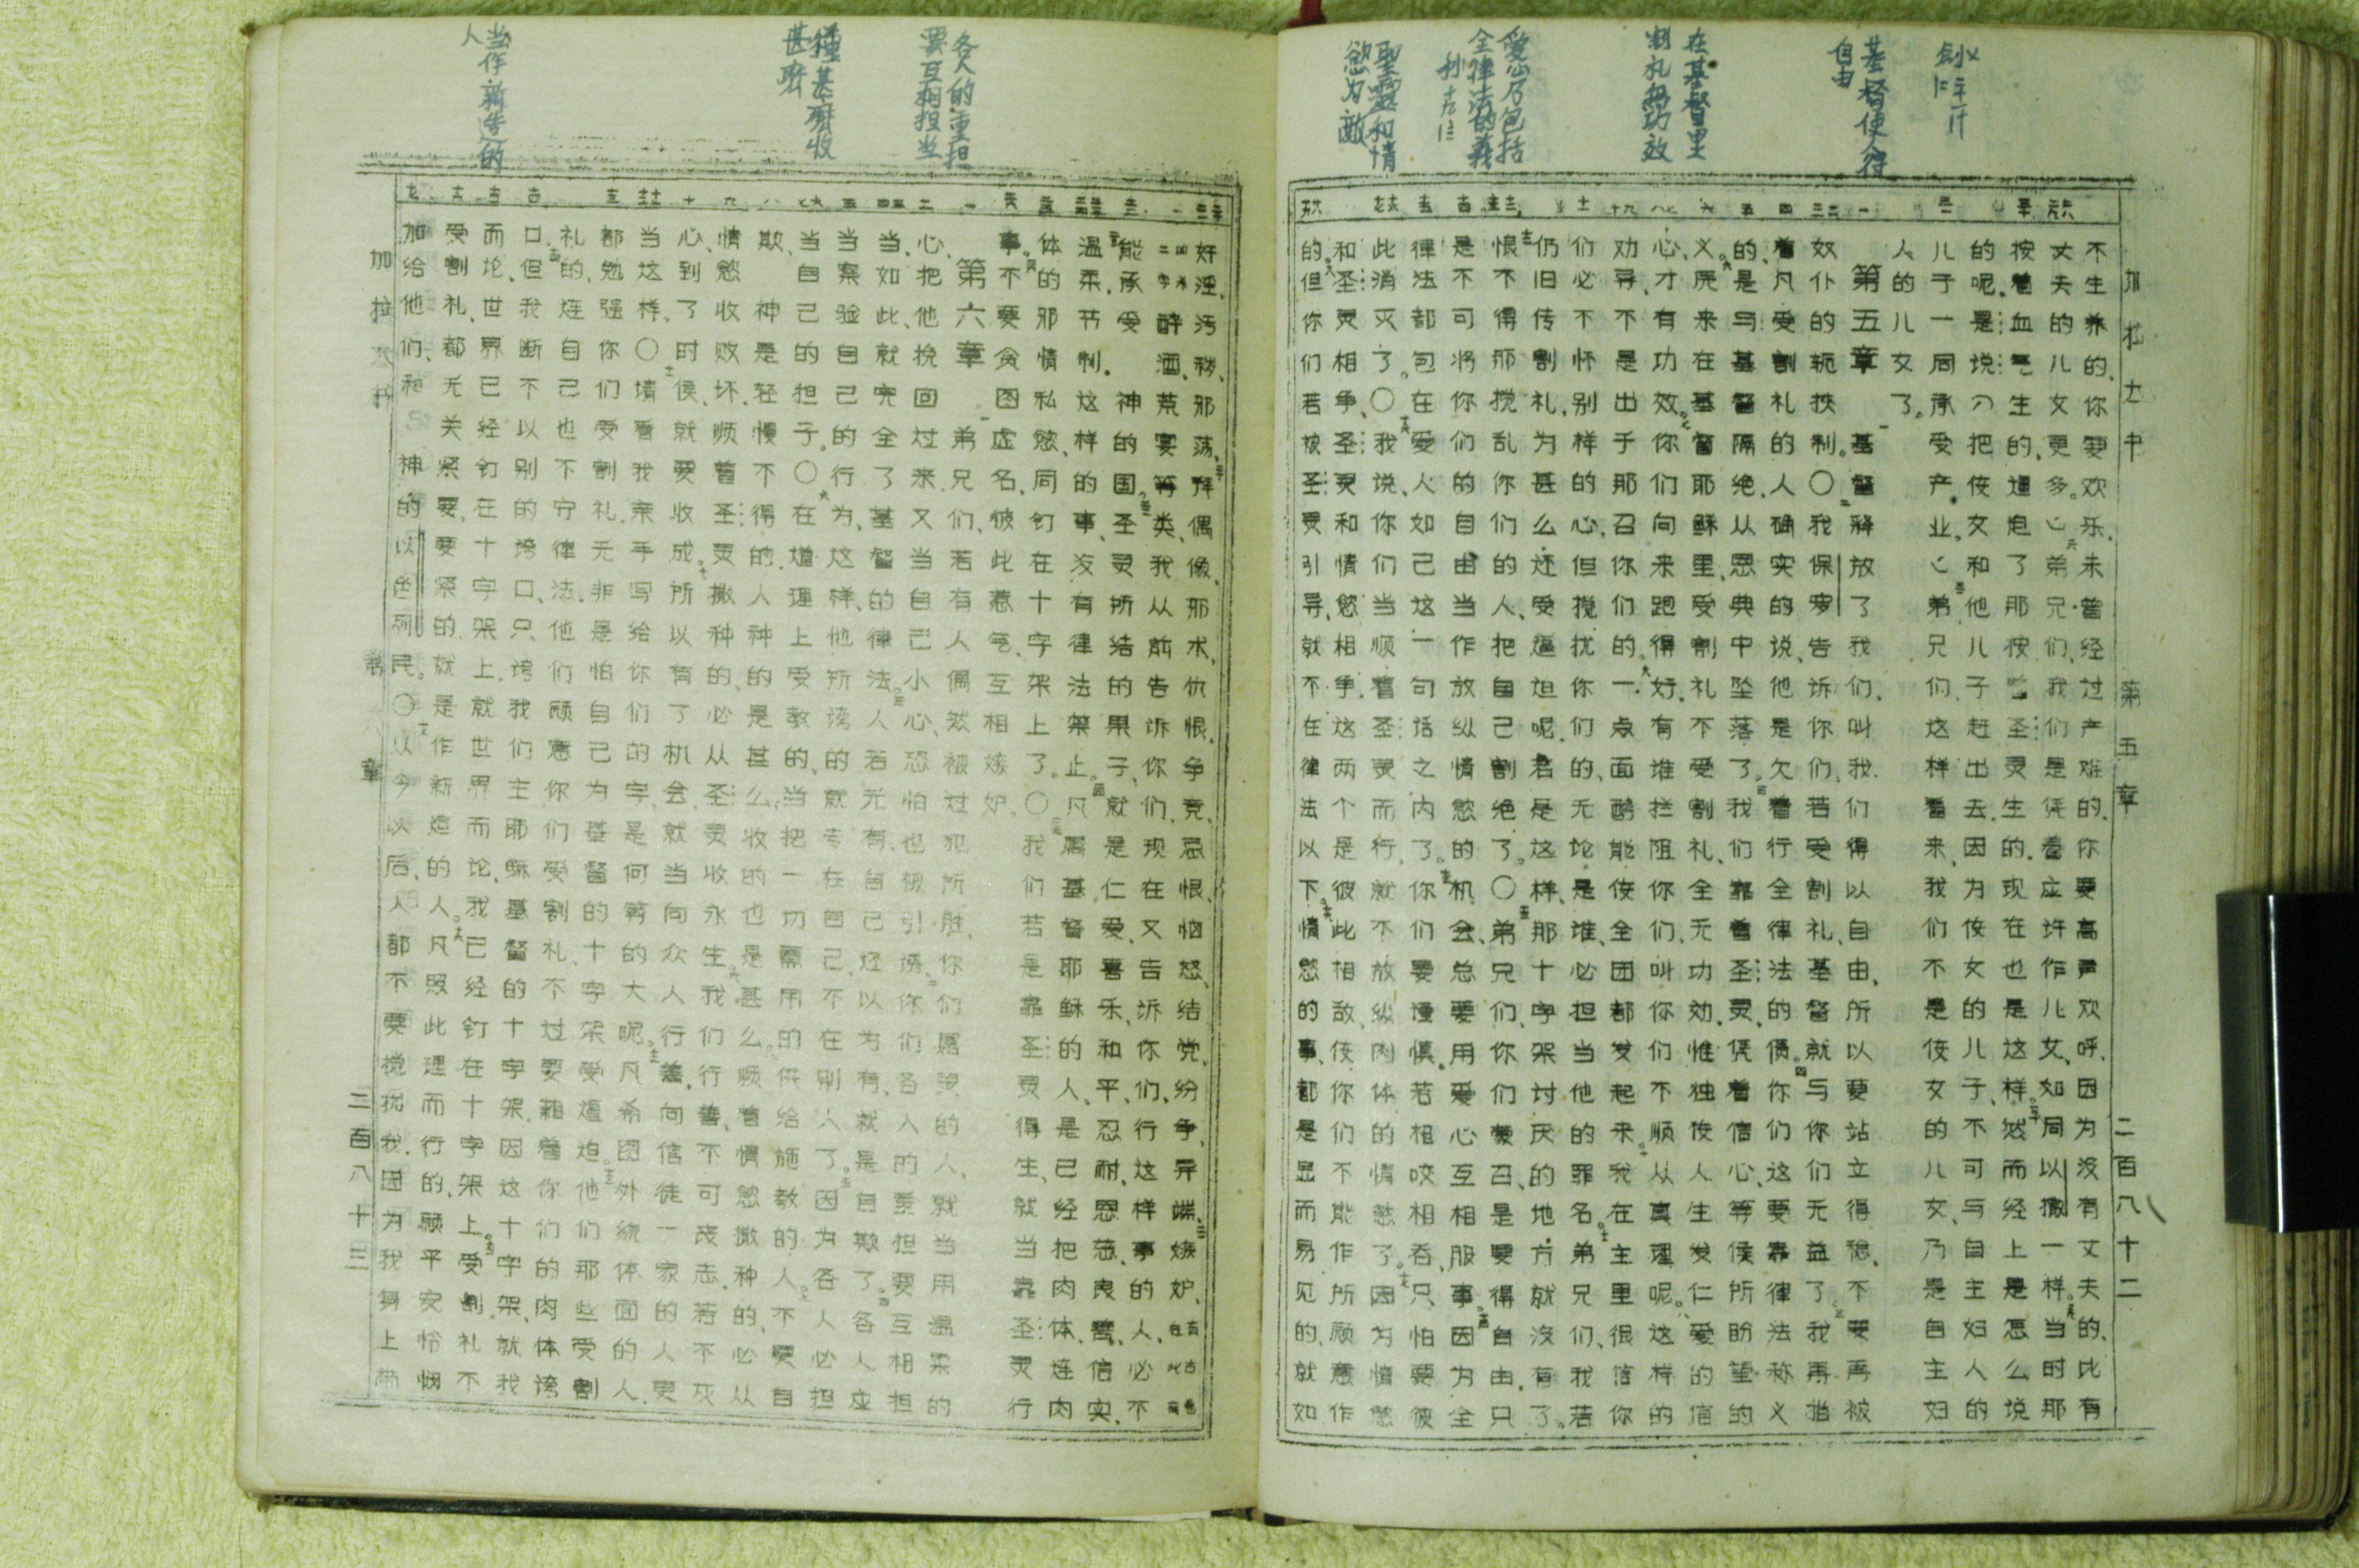 基督使人得
自由
在基督里
割礼無功效
愛心乃包括
全律法的義
聖靈和情
慾为敵
加拉太书 第五章 二百八十二
不生养的、你要欢乐、未曾经过产难的、你要高声欢呼、因为没有丈夫的、比有
丈夫的儿女更多。弟兄们、我们是凭着应许作儿女、如同以撒一样。当时那
按着血气生的、逼迫了那按着圣灵生的、现在也是这样。然而经上是怎么说
的呢、是说、把使女和他儿子赶出去、因为使女的儿子、不可与自主妇人的
儿子一同承受产业。弟兄们、这样看来、我们不是使女的儿女、乃是自主妇
人的儿女了。
第五章 基督释放了我们、叫我们得以自由、所以要站立得稳、不要再被
奴仆的轭挟制。〇我保罗告诉你们、若受割礼、基督就与你们无益了。我再指
着凡受割礼的人确实的说、他是欠着行全律法的债。你们这要靠律法称义
的、是与基督隔绝、从恩典中坠落了。我们靠着圣灵、凭着信心、等候所盼望的
义。原来在基督耶稣里、受割礼不受割礼、全无功效、惟独使人生发仁爱的信
心、才有功效。你们向来跑得好、有谁拦阻你们、叫你们不顺从真理呢。这样的
劝导、不是出于那召你们的。一点面酵能使全团都发起来。我在主里很信你
们必不怀别样的心、但搅扰你们的、无论是谁、必担当他的罪名。弟兄们、我若
仍旧传割礼、为甚么还受逼迫呢、若是这样、那十字架讨厌的地方就没有了。
恨不得那搅乱你们的人、把自己割绝了。〇弟兄们、你们蒙召、是要得自由、只
是不可将你们的自由当作放纵情慾的机会、总要用爱心互相服事。因为全
律法都包在爱人如己这一句话之内了。你们要谨慎。若相咬相吞、只怕要彼
此消灭了。〇我说、你们当顺着圣灵而行、就不放纵肉体的情慾了。因为情慾
和圣灵相争、圣灵和情慾相争、这两个是彼此相敌、使你们不能作所愿意作
的。但你们若被圣灵引导、就不在律法以下。情慾的事、都是显而易见的、就如
各人的重担
要互相担当
種甚麼收
甚麼
当作新造的
人
奸淫、污秽、邪荡、拜偶像、邪术、仇恨、争竞、忌恨、恼怒、结党、纷争、异端、嫉妒、
醉酒、荒宴等类、我从前告诉你们、现在又告诉你们、行这样事的人、必不
能承受神的国。圣灵所结的果子、就是仁爱、喜乐、和平、忍耐、恩慈、良善、信实、
温柔、节制。这样的事、没有律法禁止。凡属基督耶稣的人、是已经把肉体、连肉
体的邪情私慾、同钉在十字架上了。〇我们若是靠圣灵得生、就当靠圣灵行
事。不要贪图虚名、彼此惹气、互相嫉妒。
第六章 弟兄们、若有人偶然被过犯所胜、你们属灵的人、就当用温柔的
心、把他挽回过来、又当自己小心、恐怕也被引诱。你们各人的重担要互相担
当、如此就完全了基督的律法。人若无有、自己还以为有、就是自欺了。各人应
当察验自己的行为、这样、他所夸的就专在自己、不在别人了。因为各人必担
当自己的担子。〇在道理上受教的、当把一切需用的供给施教的人。不要自
欺、神是轻慢不得的。人种的是甚么、收的也是甚么。顺着情慾撒种的、必从
情慾收败坏、顺着圣灵撒种的、必从圣灵收永生。我们行善、不可丧志、若不灰
心、到了时候、就要收成。所以有了机会、就当向众人行善、向信徒一家的人更
当这样。〇请看我亲手写给你们的字、是何等的大呢。凡希图外貌体面的人、
都勉强你们受割礼、无非是怕自己为基督的十字架受逼迫。他们那些受割
礼的、连自己也不守律法、他们愿意你们受割礼、不过要藉着你们的肉体夸
口。但我断不以别的夸口、只夸我们主耶稣基督的十字架、因这十字架、就我
而论、世界已经钉在十字架上、就世界而论、我已经钉在十字架上。受割礼不
受割礼、都无关紧要、要紧的就是作新造的人。凡照此理而行的、愿平安怜悯
加给他们、和神的以色列民。〇从今以后、人都不要搅扰我、因为我身上带
加拉太书 第六章 二百八十三